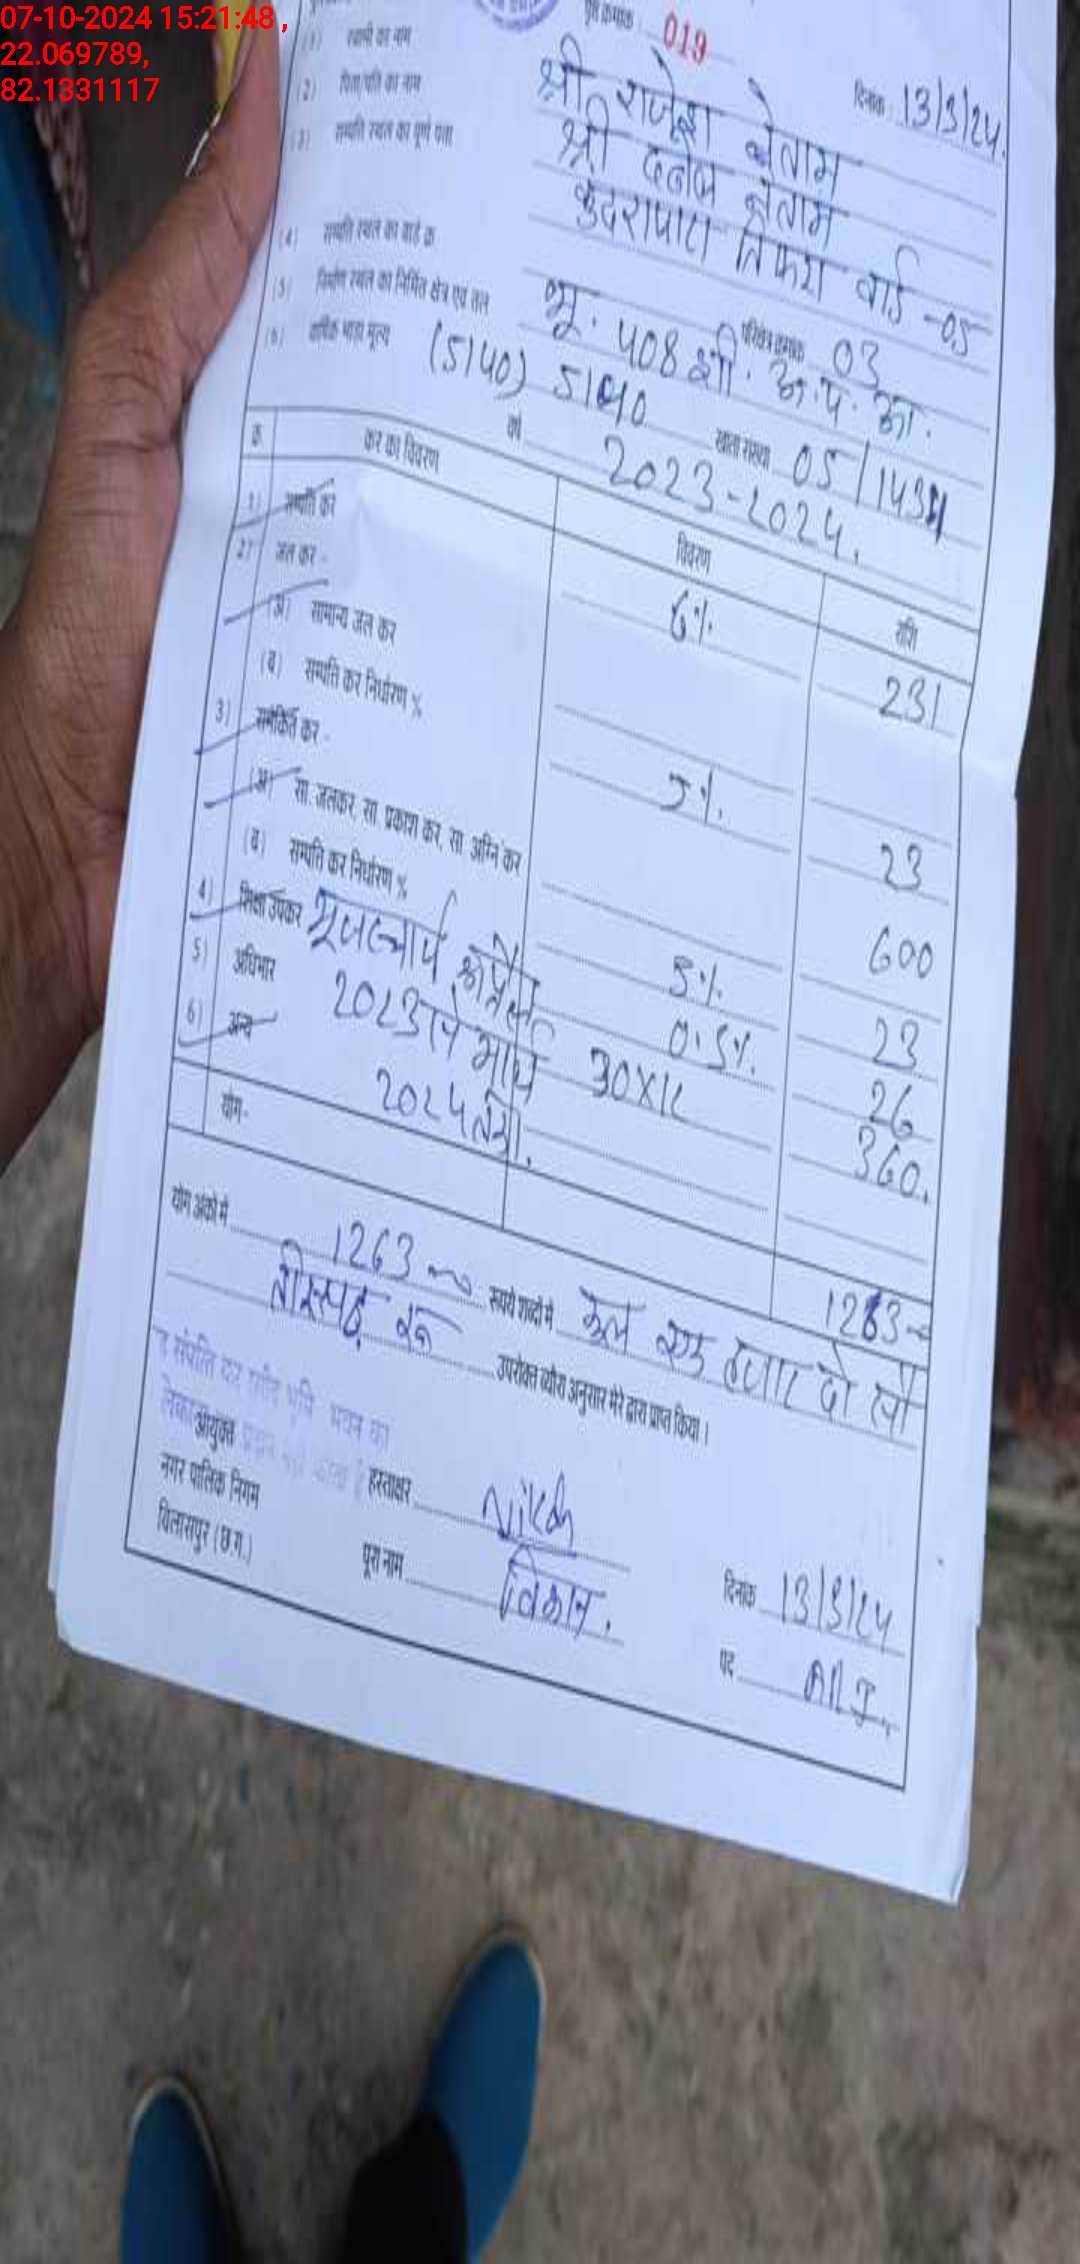 07-10-2024 15:21:48 ,
22.069789,
82.1331117
पृष्ठ क्रमांक 019
दिनांक 13/3/24.
(1) स्वामी का नाम श्री राजेश नेताम
(2) पिता/पति का नाम श्री नेताम
(3) सम्पत्ति स्थल का पूर्ण पता कुदरापारा तिफरा वार्ड -05
(4) सम्पत्ति स्थल का वार्ड क्र परिक्षेत्र क्रमांक 03
(5) निर्माण स्थल का निर्मित क्षेत्र एवं तल भू. 408 शी. क. प. का.
(6) वार्षिक भाड़ा मूल्य (5140) 5140 खाता संख्या 05/1431
वर्ष 2023-2024.
क्र. कर का विवरण विवरण राशि
1) सम्पत्ति कर 6% 231
2) जल कर -
(अ) सामान्य जल कर
(ब) सम्पत्ति कर निर्धारण % 5% 23
3) समेकित कर -
(अ) सा. जलकर, सा. प्रकाश कर, सा. अग्नि कर 600
(ब) सम्पत्ति कर निर्धारण % 5% 23
4) शिक्षा उपकर 0.5% 26
5) अधिभार यूजरचार्ज अप्रैल 30X12 360.
6) अन्य 2023 से मार्च
2024 तक.
योग- 1263
योग अंको में 1263 रूपये शब्दों में कुल एक हजार दो सौ
तिरसठ रू उपरोक्त ब्यौरा अनुसार मेरे द्वारा प्राप्त किया।
संपत्ति कर रसीद भूमि भवन का
आयुक्त
नगर पालिक निगम
बिलासपुर (छ.ग.)
हस्ताक्षर
पूरा नाम विकास.
दिनांक 13/3/24
पद